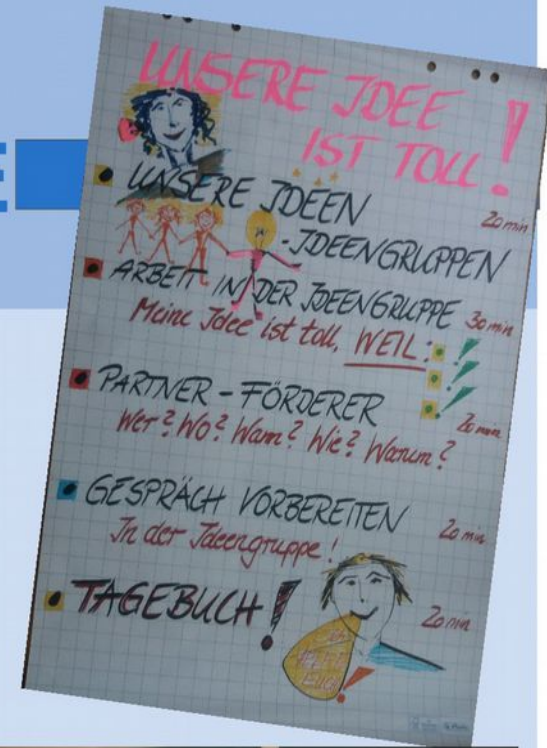 E
UNSERE IDEE
IST TOLL!
UNSERE IDEEN 20 min
-IDEENGRUPPEN
ARBEIT IN DER IDEENGRUPPE 30 min
Meine Idee ist toll, WEIL: !
!
!
PARTNER-FÖRDERER 20 min
Wer? Wo? Wann? Wie? Warum?
GESPRÄCH VORBEREITEN 20 min
In der Ideengruppe!
TAGEBUCH! 20 min
EUCH!